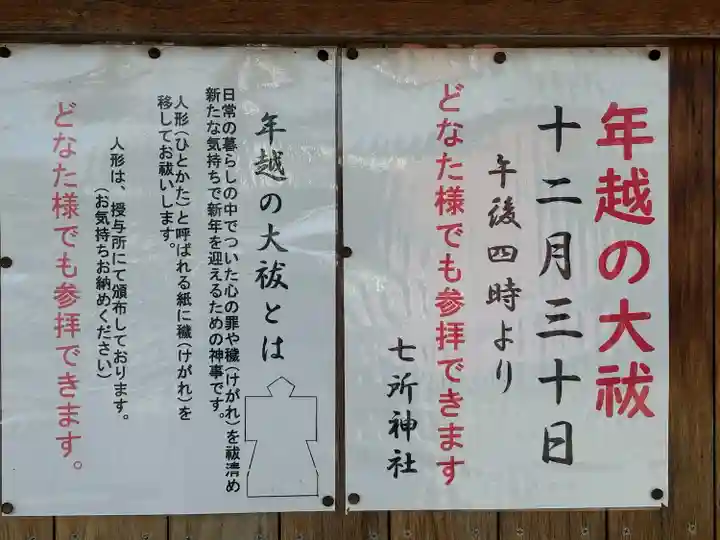 年越の大祓
十二月三十日
午後四時より
どなた様でも参拝できます
七所神社
年越の大祓とは
日常の暮らしの中でついた心の罪や穢(けがれ)を祓清め
新たな気持ちで新年を迎えるための神事です。
人形(ひとかた)と呼ばれる紙に穢(けがれ)を
移してお祓いします。
人形は、授与所にて頒布しております。
(お気持ちお納めください)
どなた様でも参拝できます。